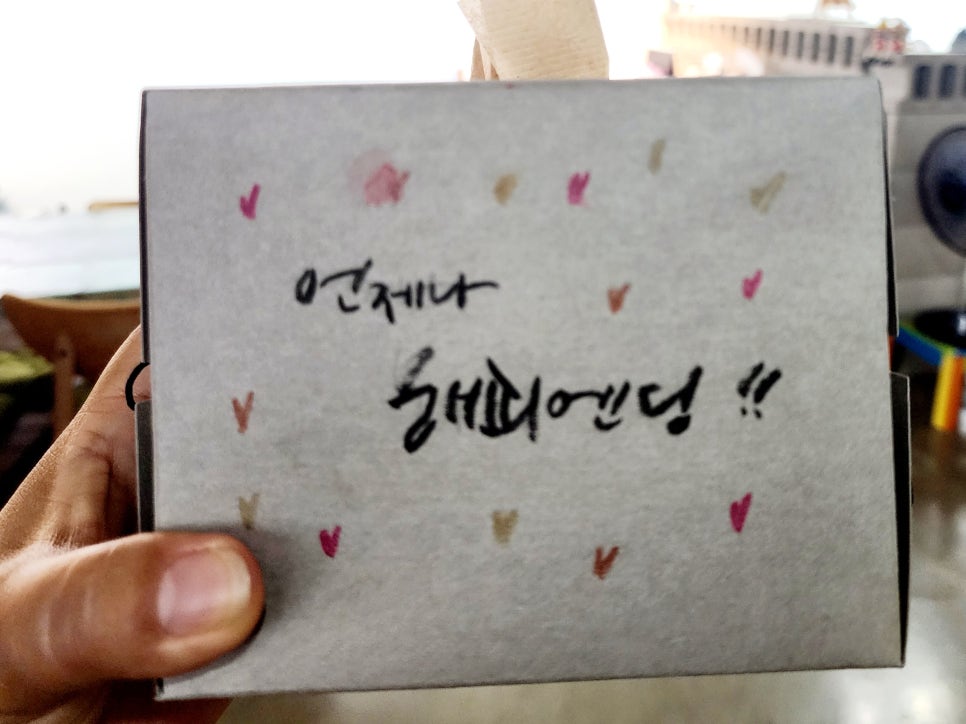 언제나
해피엔딩 !!